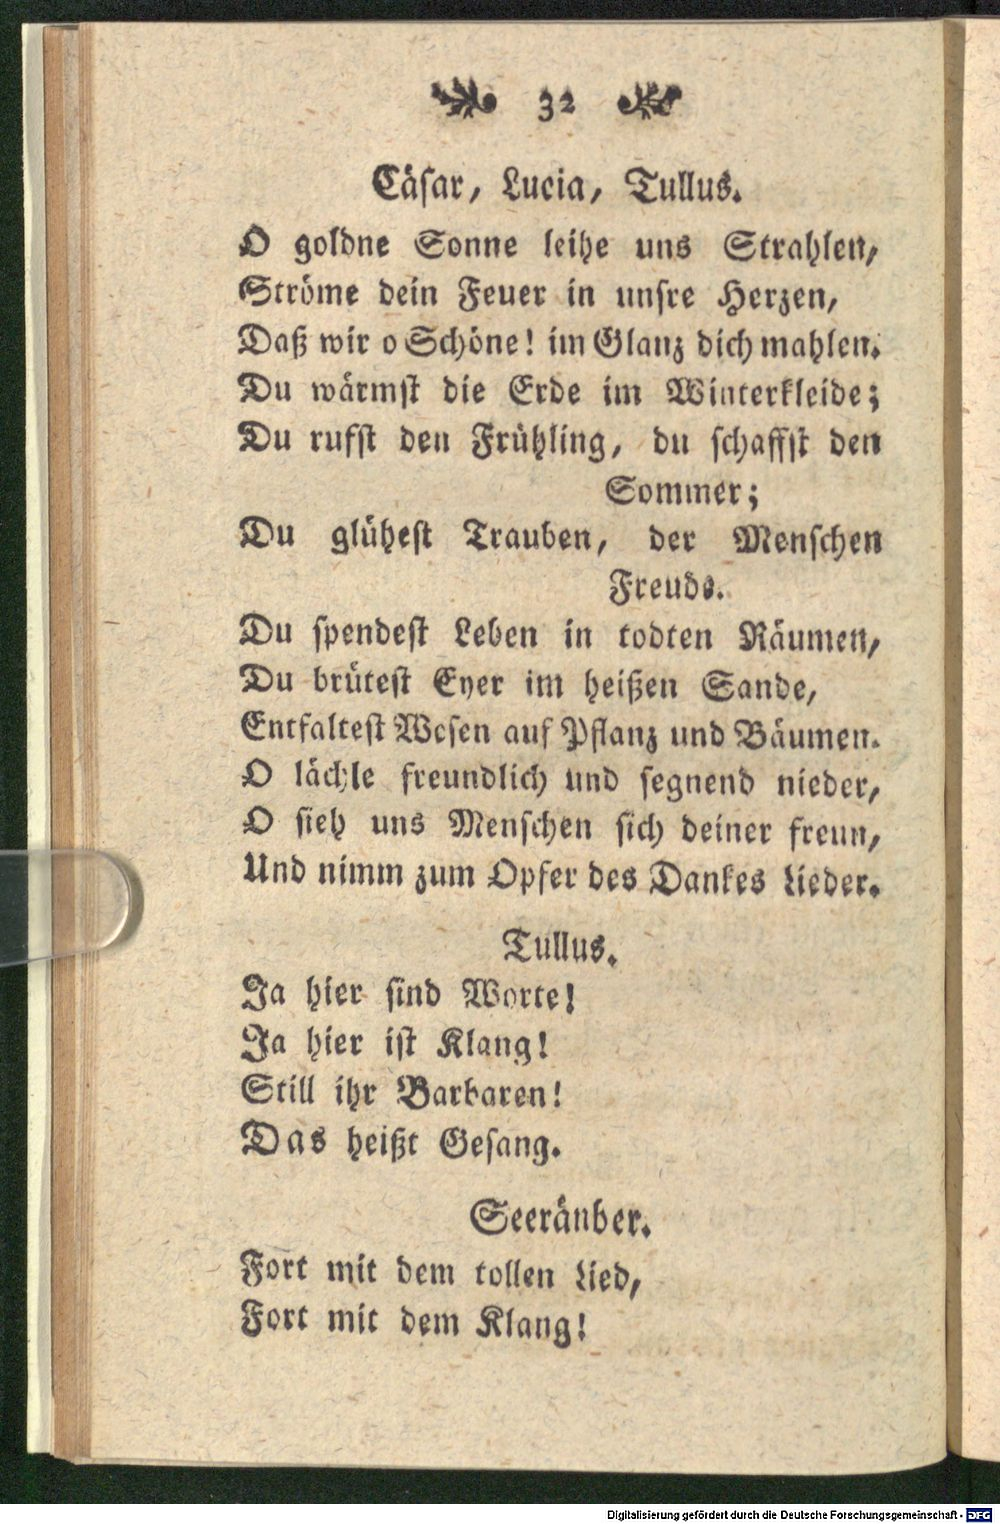 32
Cäsar, Lucia, Tullus.
O goldne Sonne leihe uns Strahlen,
Ströme dein Feuer in unsre Herzen,
Daß wir o Schöne! im Glanz dich mahlen.
Du wärmst die Erde im Winterkleide;
Du rufst den Frühling, du schaffst den
Sommer;
Du glühest Trauben, der Menschen
Freude.
Du spendest Leben in todten Räumen,
Du brütest Eyer im heißen Sande,
Entfaltest Wesen auf Pflanz und Bäumen.
O lächle freundlich und segnend nieder,
O sieh uns Menschen sich deiner freun,
Und nimm zum Opfer des Dankes Lieder.
Tullus.
Ja hier sind Worte!
Ja hier ist Klang!
Still ihr Barbaren!
Das heißt Gesang.
Seeräuber.
Fort mit dem tollen Lied,
Fort mit dem Klang!
Digitalisierung gefördert durch die Deutsche Forschungsgemeinschaft - DFG